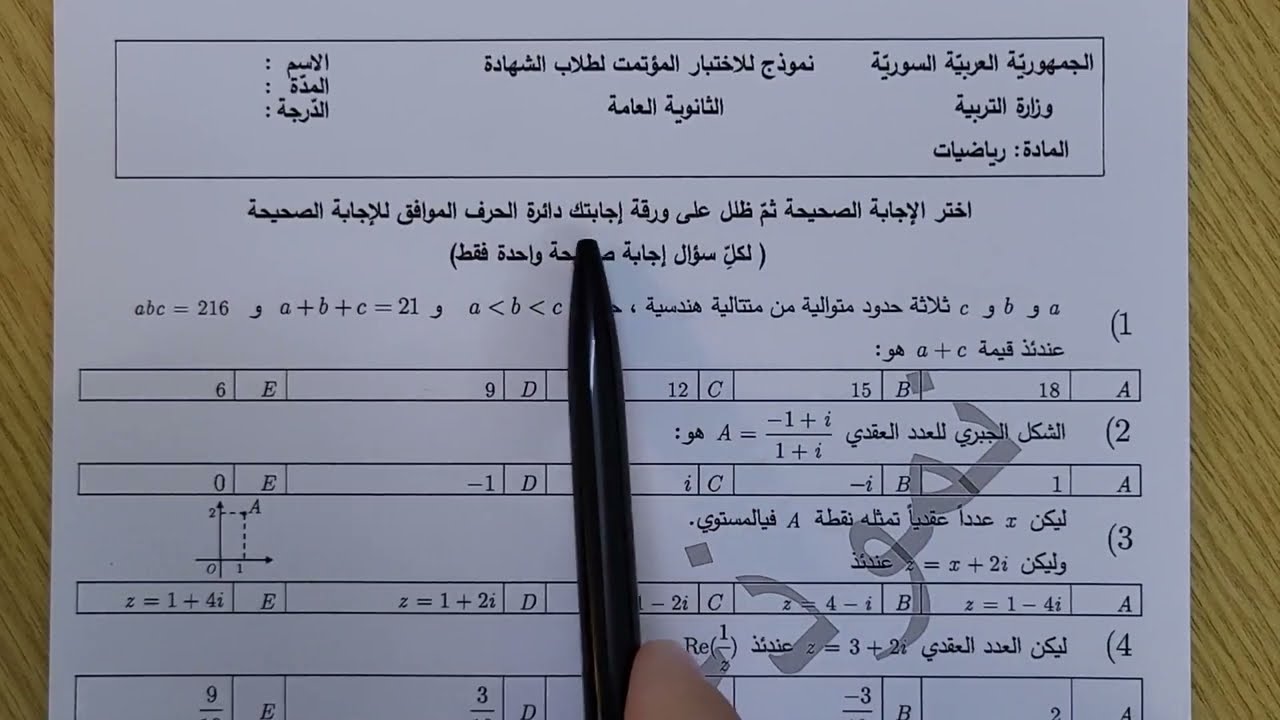 الجمهوريّة العربيّة السوريّة
وزارة التربية
المادة: رياضيات
نموذج للاختبار المؤتمت لطلاب الشهادة
الثانوية العامة
الاسم :
المدّة :
الدّرجة :
اختر الإجابة الصحيحة ثمّ ظلل على ورقة إجابتك دائرة الحرف الموافق للإجابة الصحيحة
( لكلِّ سؤال إجابة واحدة فقط)
(1 a و b و c ثلاثة حدود متوالية من متتالية هندسية ، a < b < c و a + b + c = 21 و abc = 216
عندئذ قيمة a + c هو:
A 18 B 15 C 12 D 9 E 6
(2 الشكل الجبري للعدد العقدي A = (-1 + i)/(1 + i) هو:
A 1 B -i C i D -1 E 0
(3 ليكن x عدداً عقدياً تمثله نقطة A فيالمستوي.
وليكن z = x + 2i عندئذ
2 A
O 1
A z = 1 - 4i B z = 4 - i C - 2i D z = 1 + 2i E z = 1 + 4i
(4 ليكن العدد العقدي z = 3 + 2i عندئذ Re(1/z)
A 2 B -3 D 3 E 9
نموذ